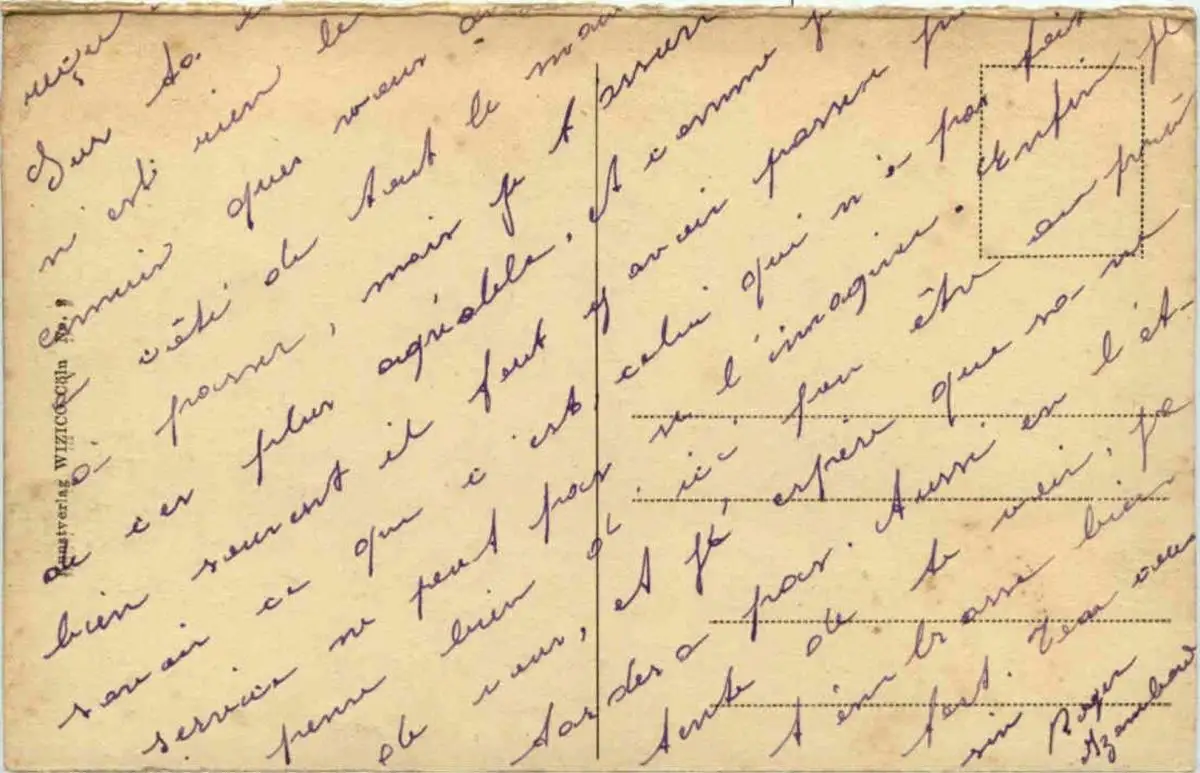 reçu
Sur ta
n'est rien le
ennuis que vous
côté de tout le
à passer, mais je t'assure
de ces plus agréable, et comme j
bien souvent il faut y avoir passer
savoir ce que c'est celui qui n'a pas fait
service ne peut pas se l'imaginer. Enfin je
pense bien d'ici peu être en
de, et j'espère que sa ne
tardera pas. Aussi en l'at-
tente de te voir, je
t'embrasse bien
fort. Ton cou
sin Roger
Kunstverlag WIZICO Cöln No. 9